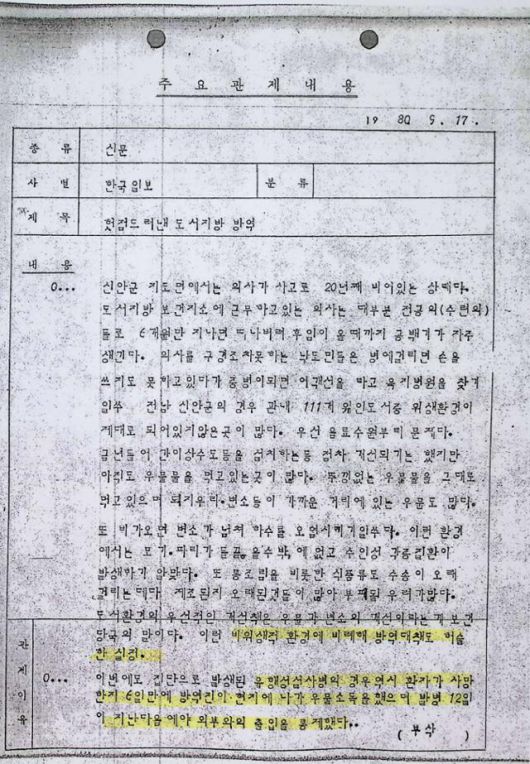 주 요 관 제 내 용
19 80 9. 17.
종 류 신문
사 별 한국일보 분 류
제 목 헛점드러낸 도서지방 방역
내 용
0... 신안군 지도면에서는 의사가 사고로 20년째 비어있는 상태다.
도서지방 보건지소에 근무하고있는 의사는 대부분 전공의(수련의)
들로 6개월만 지나면 떠나버려 후임이 올때까지 공백기가 자주
생긴다. 의사를 구경조차못하는 낙도민들은 병에걸리면 손을
쓰지도 못하고있다가 중병이되면 어선을 타고 육지병원을 찾기
일쑤 전남 신안군의 경우 관내 111개 유인도서중 위생환경이
제대로 되어있지않은곳이 많다. 우선 음료수원부터 문제다.
금년들어 간이상수도등을 설치하는등 점차 개선되기는 했지만
아직도 우물물을 먹고있는곳이 많다. 뚜껑없는 우물물을 그대로
먹고있으며 돼지우리.변소등이 가까운 거리에 있는 우물도 많다.
또 비가오면 변소가 넘쳐 하수를 오염시키기일쑤다. 이런 환경
에서는 모기.파리가 들끓을수밖에 없고 수인성 각종질환이
발생하기 알맞다. 또 통조림을 비롯한 식품류도 수송이 오래
걸리는데다 제조된지 오래된것들이 많아 부패될 우려가많다.
도서환경의 우선적인 개선책은 우물과 변소의 개선이라는게 보건
당국의 말이다. 이런 비위생적 환경에 비례해 방역대책도 허술
한 실정.
관 제 이 유
0... 이번에도 집단으로 발생된 유행성설사병의 경우역시 환자가 사망
한지 6일만에 방역진이 현지에 나가 우물소독을했으며 발병 12일
이 지난다음에야 외부와의 출입을 통제했다..
( 부산 )